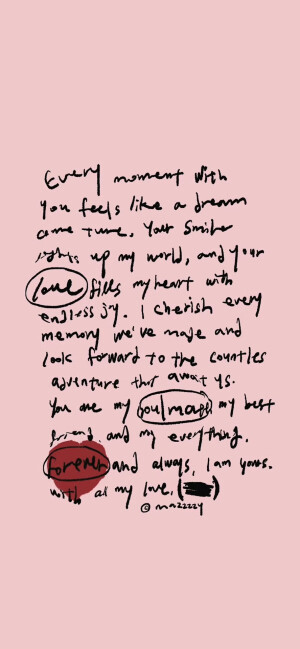 Every moment with
you feels like a dream
come true. Your smile
lights up my world, and your
love fills my heart with
endless joy. I cherish every
memory we've made and
look forward to the countles
adventure that await us.
You are my soulmate my best
friend, and my everything.
forever and always, I am yours.
with all my love,
© mazzzzy